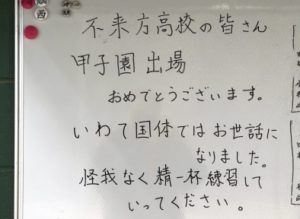 不来方高校の皆さん
甲子園出場
おめでとうございます。
いわて国体ではお世話に
なりました。
怪我なく精一杯練習して
いってください。